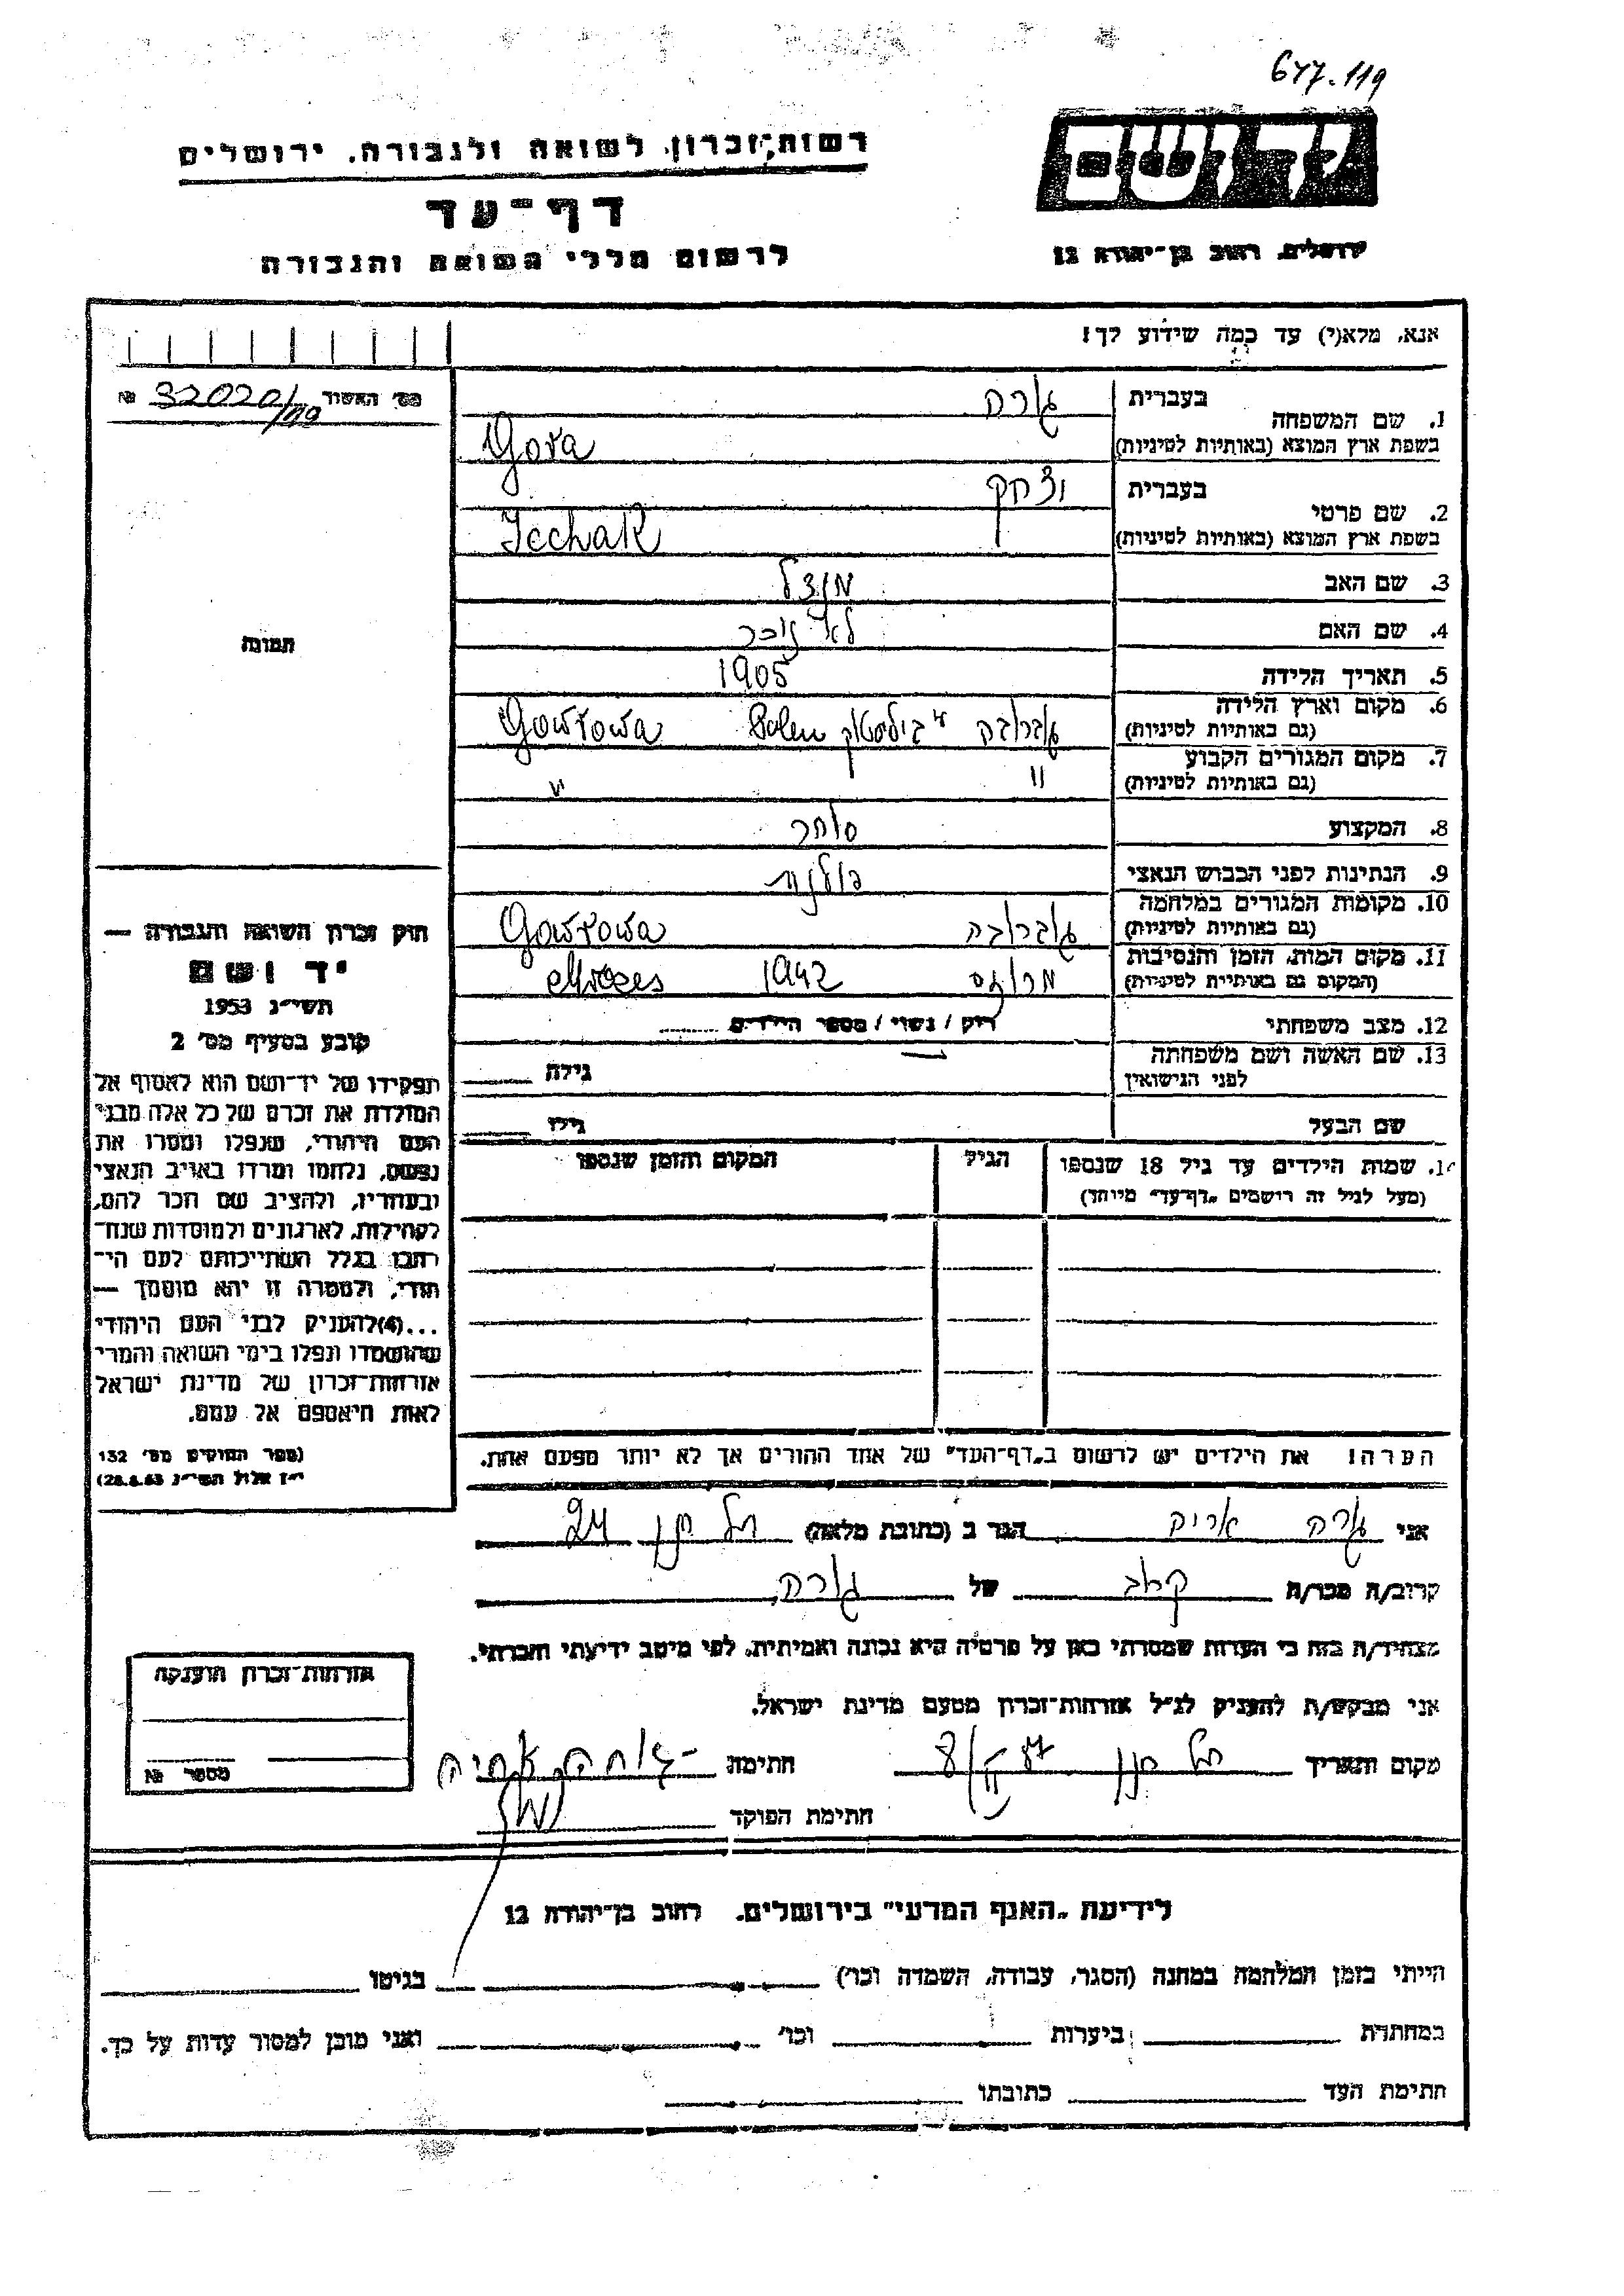 677.119
יד ושם
ירושלים, רחוב בן-יהודה 12
רשות זכרון לשואה ולגבורה, ירושלים
דף-עד
לרשום חללי השואה והגבורה
אנא, מלא(י) עד כמה שידוע לך!
מס' האשור № 32020/119
תמונה
1. שם המשפחה
בעברית גורה
בשפת ארץ המוצא (באותיות לטיניות) Gora
2. שם פרטי
בעברית יצחק
בשפת ארץ המוצא (באותיות לטיניות) Icchak
3. שם האב
4. שם האם לא זוכר
5. תאריך הלידה 1905
6. מקום וארץ הלידה
(גם באותיות לטיניות) גוברובה Polen Goworowa
7. מקום המגורים הקבוע
(גם באותיות לטיניות) " "
8. המקצוע סוחר
9. הנתינות לפני הכבוש הנאצי פולנית
10. מקומות המגורים במלחמה
(גם באותיות לטיניות) גוברובה Goworowa
11. מקום המות, הזמן והנסיבות
(המקום גם באותיות לטיניות) 1942
12. מצב משפחתי רוק / נשוי / מספר הילדים
13. שם האשה ושם משפחתה
לפני הנישואין גילה
שם הבעל גילו
14. שמות הילדים עד גיל 18 שנספו
(מעל לגיל זה רושמים "דף-עד" מיוחד)
הגיל
המקום והזמן שנספו
חוק זכרון השואה והגבורה —
יד ושם
תשי"ג 1953
קובע בסעיף מס' 2
תפקידו של יד-ושם הוא לאסוף אל
המולדת את זכרם של כל אלה מבני
העם היהודי, שנפלו ומסרו את
נפשם, נלחמו ומרדו באויב הנאצי
ובעוזריו, ולהציב שם וזכר להם,
לקהילות, לארגונים ולמוסדות שנח-
רבו בגלל השתייכותם לעם הי-
הודי, ולמטרה זו יהא מוסמך —
...(4) להעניק לבני העם היהודי
שהושמדו ונפלו בימי השואה והמרי
אזרחות-זכרון של מדינת ישראל
לאות היאספם אל עמם.
(ספר החוקים מס' 132
י"ז אלול תשי"ג 28.8.53)
הערה! את הילדים יש לרשום ב"דף-העד" של אחד ההורים אך לא יותר מפעם אחת.
אני גורה אריה הגר ב (כתובת מלאה) תל חנן 24
קרוב/ה מכר/ה קרוב של גורה
מצהיר/ה בזה כי העדות שמסרתי כאן על פרטיה היא נכונה ואמיתית, לפי מיטב ידיעתי והכרתי.
אני מבקש/ת להעניק לנ"ל אזרחות-זכרון מטעם מדינת ישראל.
מקום ותאריך תל חנן חתימה גורה אריה
חתימת הפוקד
אזרחות-זכרון הוענקה
מספר №
לידיעת "האגף המדעי" בירושלים. רחוב בן-יהודה 12
הייתי בזמן המלחמה במחנה (הסגר, עבודה, השמדה וכו') בגיטו
במחתרת ביערות וכו' ואני מוכן למסור עדות על כך.
חתימת העד כתובתו